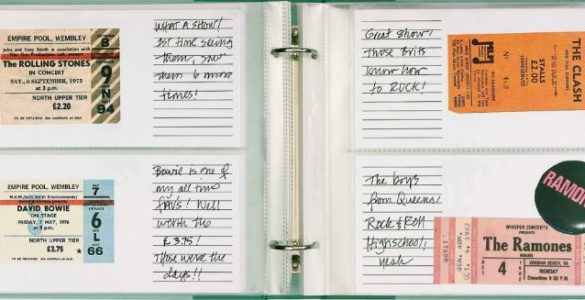 EMPIRE POOL, WEMBLEY
The ROLLING STONES
IN CONCERT
SAT., 8 SEPTEMBER, 1973
at 3 p.m.
NORTH UPPER TIER
£2.20
8
9
N
94
WHAT A SHOW!
1st time seeing
them, saw
them 6 more
times!
EMPIRE POOL, WEMBLEY
DAVID BOWIE
ON STAGE
FRIDAY, 7 MAY, 1976
at 8 p.m.
NORTH UPPER TIER
£3.75
7
6
66
Bowie is one of
my all time
favs! Well
worth the
£3.75!
Those were the
days!!
Great show!
Those Brits
know how
to ROCK!
THE CLASH
STALLS
£2.00
The boys
from Queens!
Rock & Roll
Highschool,
yeah
The Ramones
VIRGINIA BEACH, VA.
MONDAY
OCT
4
1982
GEN. ADM.
OCT. 4, 1982
RAMON